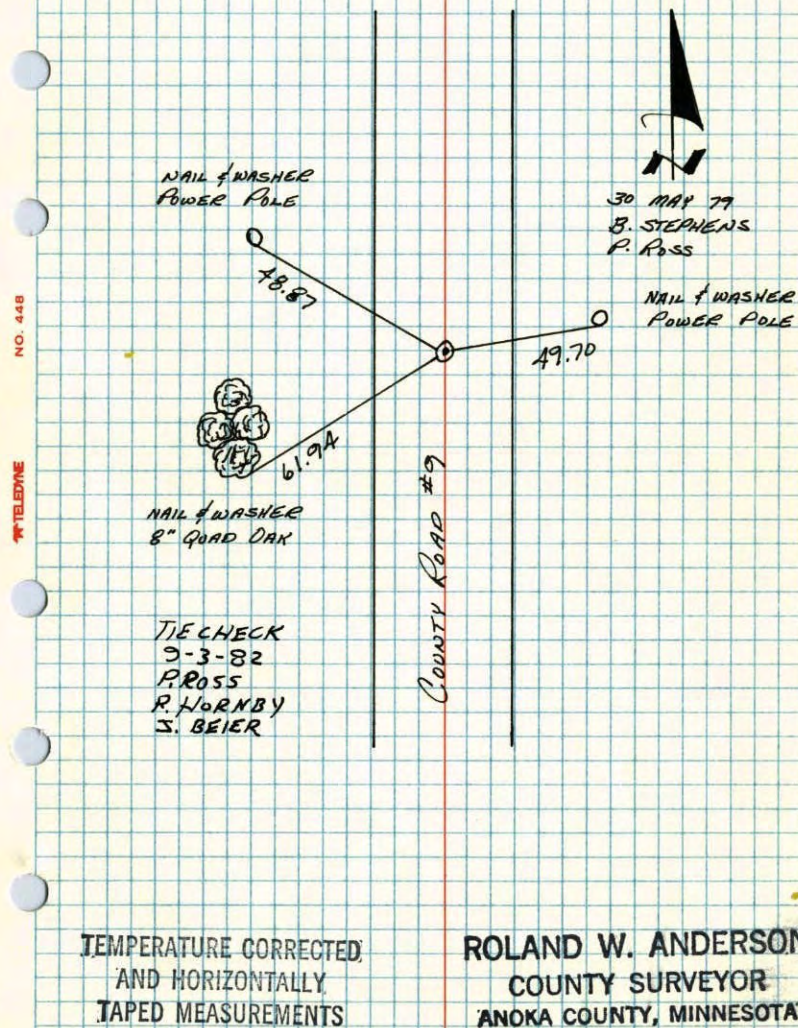 NAIL & WASHER
POWER POLE
30 MAY 79
B. STEPHENS
P. ROSS
48.87
NAIL & WASHER
POWER POLE
49.70
NO. 448
61.94
TELEDYNE
NAIL & WASHER
8" QUAD OAK
COUNTY ROAD #9
TIE CHECK
9-3-82
P. ROSS
R. HORNBY
J. BEIER
TEMPERATURE CORRECTED
AND HORIZONTALLY
TAPED MEASUREMENTS
ROLAND W. ANDERSON
COUNTY SURVEYOR
ANOKA COUNTY, MINNESOTA
N